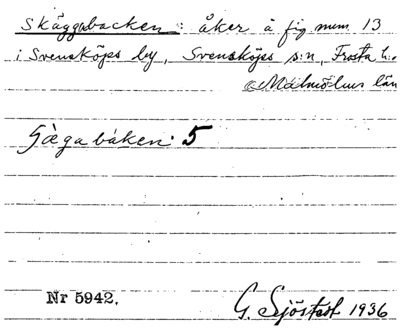 Skäggabacken: åker å fig num 13
i Svensköps by, Svensköps s:n, Frosta h:d
Malmöhus län
båken: 5
Nr 5942.
G. Sjöstedt 1936